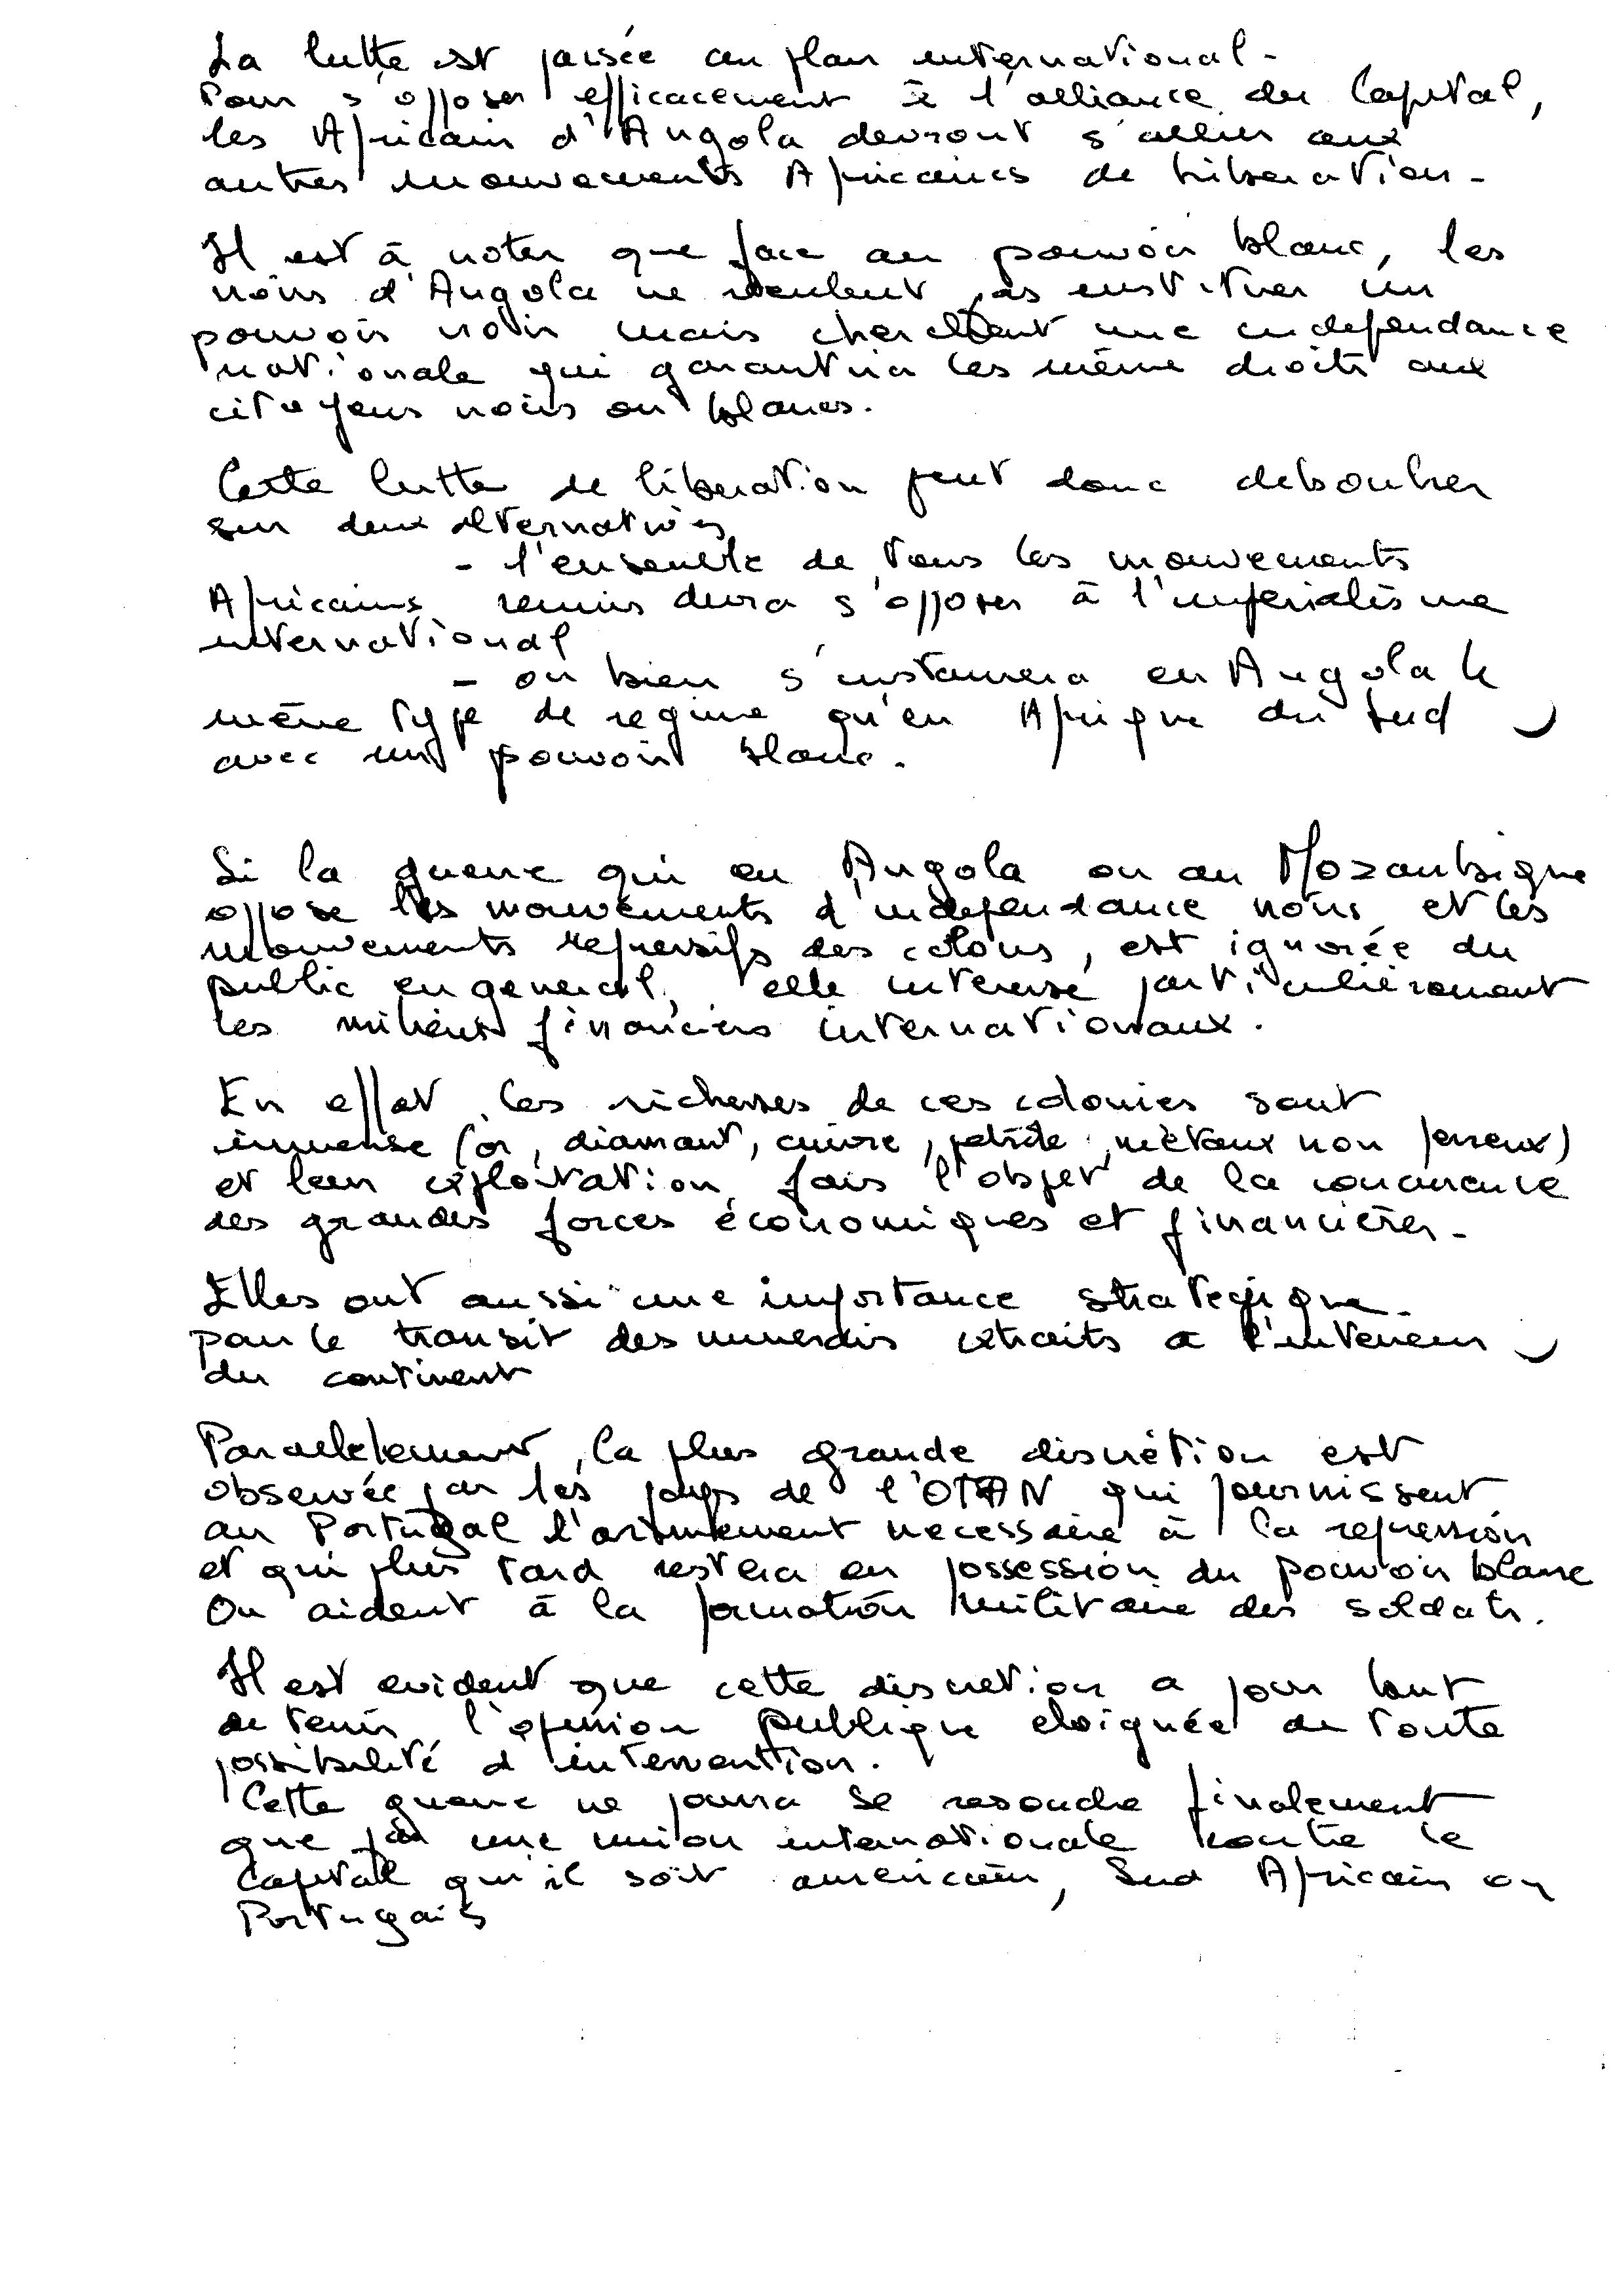 La lutte est passée au plan international -
Pour s'opposer efficacement à l'alliance du Capital,
les Africain d'Angola devront s'allier aux
autres mouvements Africains de libération -
Il est à noter que face au pouvoir blanc, les
noirs d'Angola ne veulent pas instituer un
pouvoir noir mais cherchent une independance
nationale qui garantira les même droits aux
citoyens noirs ou blancs.
Cette lutte de liberation peut donc deboucher
sur deux alternatives
- l'ensemble de tous les mouvements
Africains remis devra s'opposer à l'imperialisme
international
- ou bien s'instaurera en Angola le
même type de regime qu'en Afrique du Sud
avec un pouvoir blanc.
Si la guerre qui en Angola ou au Mozambique
oppose les mouvements d'independance noirs et les
mouvements repressifs des colons, est ignorée du
public en general, elle interesse particulièrement
les milieux financiers internationaux.
En effet, les richesses de ces colonies sont
immense (or, diamant, cuivre, pétrole, métaux non ferreux)
et leur exploitation fais l'objet de la concurrence
des grandes forces économiques et financières -
Elles ont aussi une importance strategique -
par le transit des minerais extraits a l'interieur
du continent
Parallelement, la plus grande discrétion est
observée par les pays de l'OTAN qui fournissent
au Portugal l'armement necessaire à la repression
et qui plus tard restera en possession du pouvoir blanc
Ou aident à la formation militaire des soldats.
Il est evident que cette discretion a pour but
de tenir l'opinion publique eloignée de toute
possibilité d'intervention.
Cette guerre ne pourra se resoudre finalement
que par une union internationale contre le
Capital qu'il soit americain, Sud Africain ou
Portugais